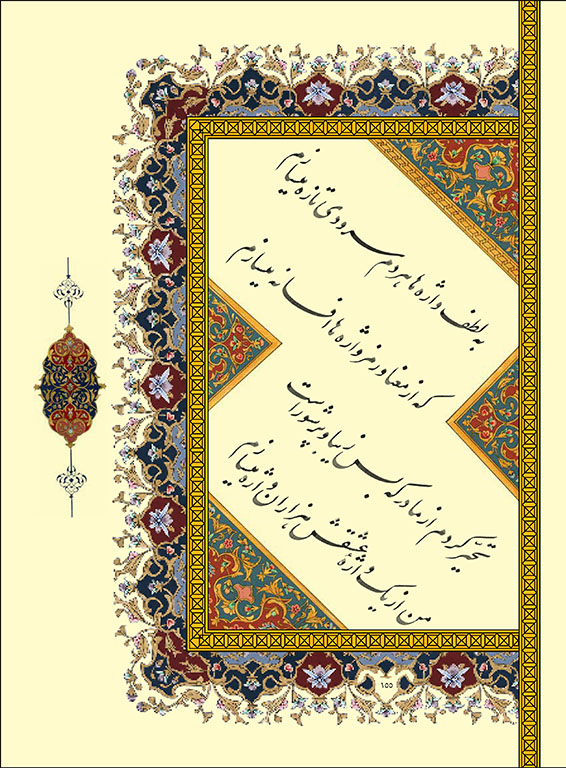 به لطف واژه ها هر دم سرودی تازه میسازم
که از معنا و رمز واژه ها افسانه میسازم
تحیّر کردم از مادر که بس زیبا و پرشور است
من از یک واژهٔ عشقش هزاران واژه میسازم
۱۵۵